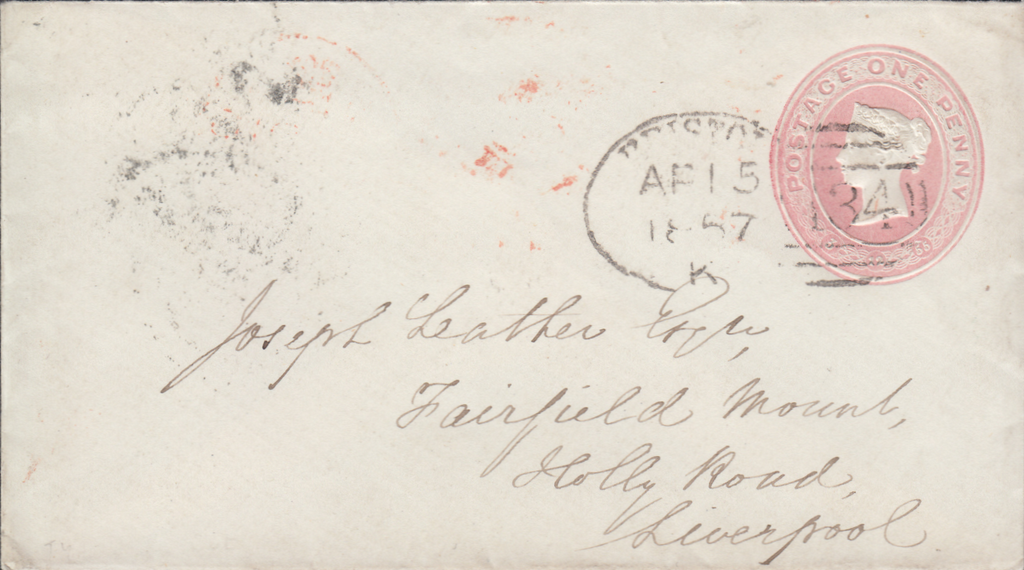 POSTAGE ONE PENNY
BRISTOL
AP 15
1857
K
134
Joseph Leather Esqre,
Fairfield Mount,
Holly Road,
Liverpool